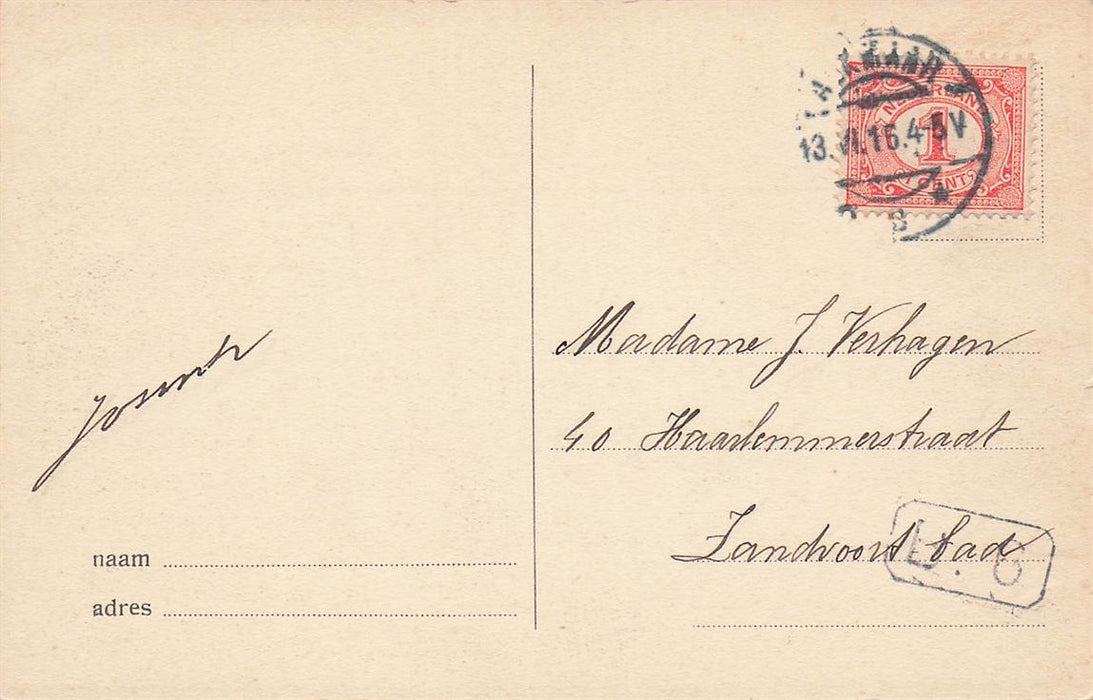 ALKMAAR
13.VI.16.4-5V
NEDERLAND
1
CENT
Madame J. Verhagen
40 Haarlemmerstraat
Zandvoort bad
naam
adres